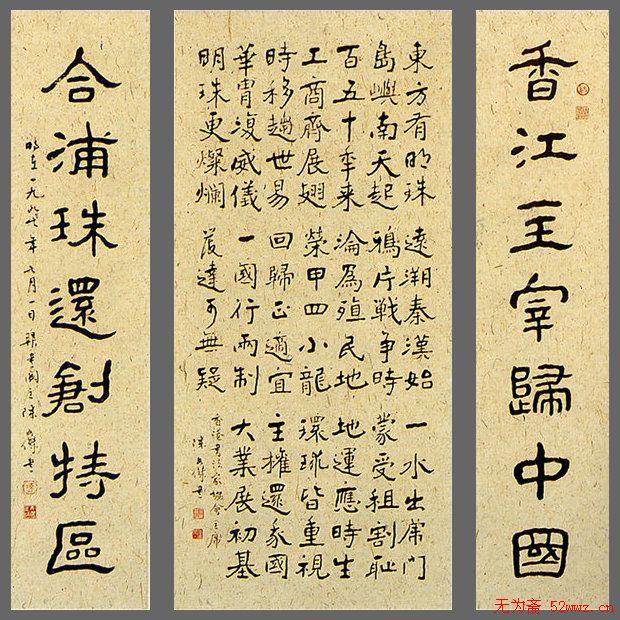 香江主宰歸中國
東方有明珠遠溯秦漢始一水出虎門
島嶼南天起鴉片戰爭時蒙受租割恥
百五十年来淪為殖民地地運應時生
工商齊展翅榮甲四小龍環球皆重視
時移趨世易回歸正適宜主權還我國
華胄復威儀一國行兩制大業展初基
明珠更燦爛發達可無疑
香港書法家協會主席
陳文傑書
合浦珠還創特區
時在一九九七年七月一日 閣主陳文傑書
无为斋 52wwz.cn